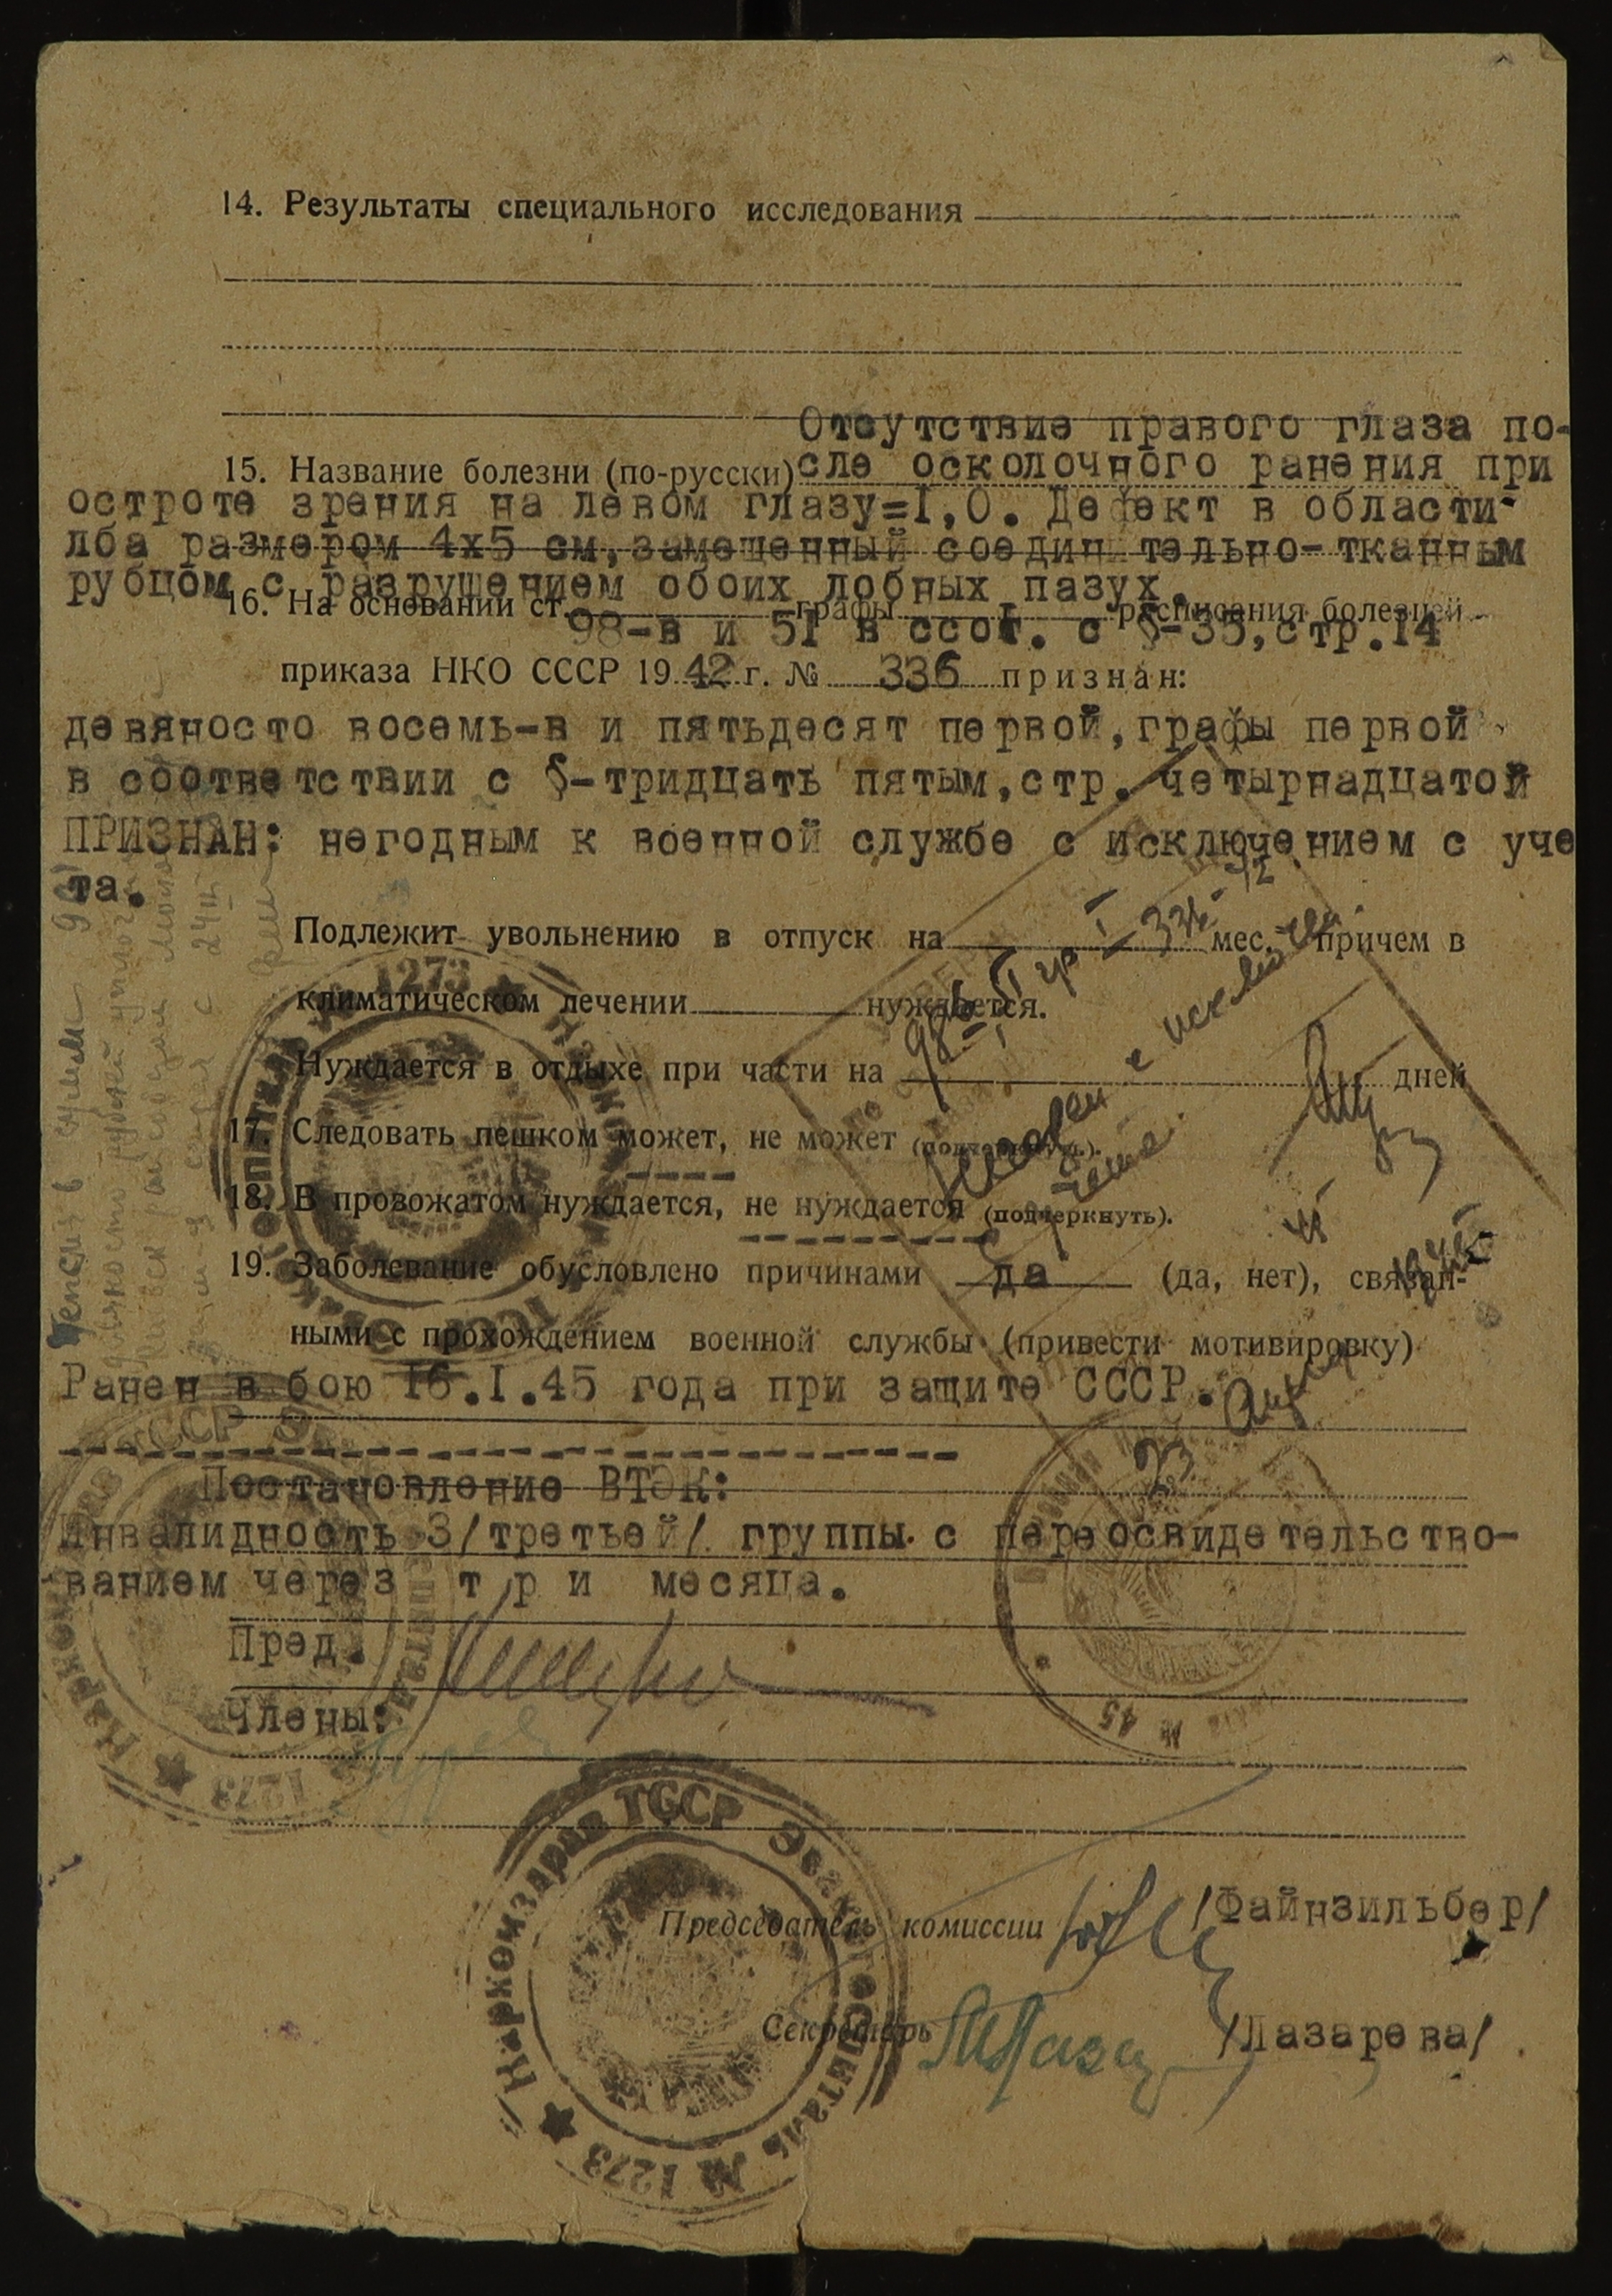 14. Результаты специального исследования
Отсутствие правого глаза по-
15. Название болезни (по-русски) сле осколочного ранения при
остроте зрения на левом глазу=I,0. Дефект в области
лба размером 4х5 см, замещенный соедин тельно-тканным
рубцом с разрушением обоих лобных пазух.
16. На основании ст. графы I расписания болезней
98-в и 51 в соот. с §-35, стр.14
приказа НКО СССР 1942 г. № 336 признан:
девяносто восемь-в и пятьдесят первой, графы первой
в соответствии с §-тридцать пятым, стр. четырнадцатой
ПРИЗНАН: негодным к военной службе с исключением с уче
та.
Подлежит увольнению в отпуск на мес. причем в
климатическом лечении нуждается.
Нуждается в отдыхе при части на дней
17. Следовать пешком может, не может (подчеркнуть).
18. В провожатом нуждается, не нуждается (подчеркнуть).
19. Заболевание обусловлено причинами да (да, нет), связан-
ными с прохождением военной службы (привести мотивировку)
Ранен в бою 16.I.45 года при защите СССР.
Постановление ВТЭК:
Инвалидность 3/третьей/ группы с переосвидетельство-
ванием через т р и месяца.
Пред.
Члены:
Председатель комиссии /Файнзильбер/
Секретарь /Лазарева/
Наркомздрав ТССР Эвакогоспиталь № 1273
№ 45